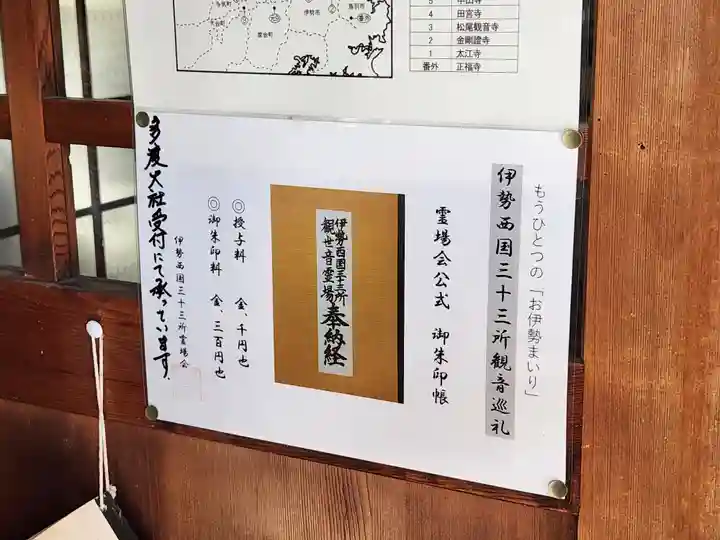 多気町
伊勢市
鳥羽市
度会町
大台町
4 田宮寺
3 松尾観音寺
2 金剛證寺
1 太江寺
番外 正福寺
もうひとつの「お伊勢まいり」
伊勢西国三十三所観音巡礼
霊場会公式 御朱印帳
伊勢西国三十三所
観世音霊場
奉納経
◎授与料 金、千円也
◎御朱印料 金、三百円也
伊勢西国三十三所霊場会
多度大社受付にて承っています。